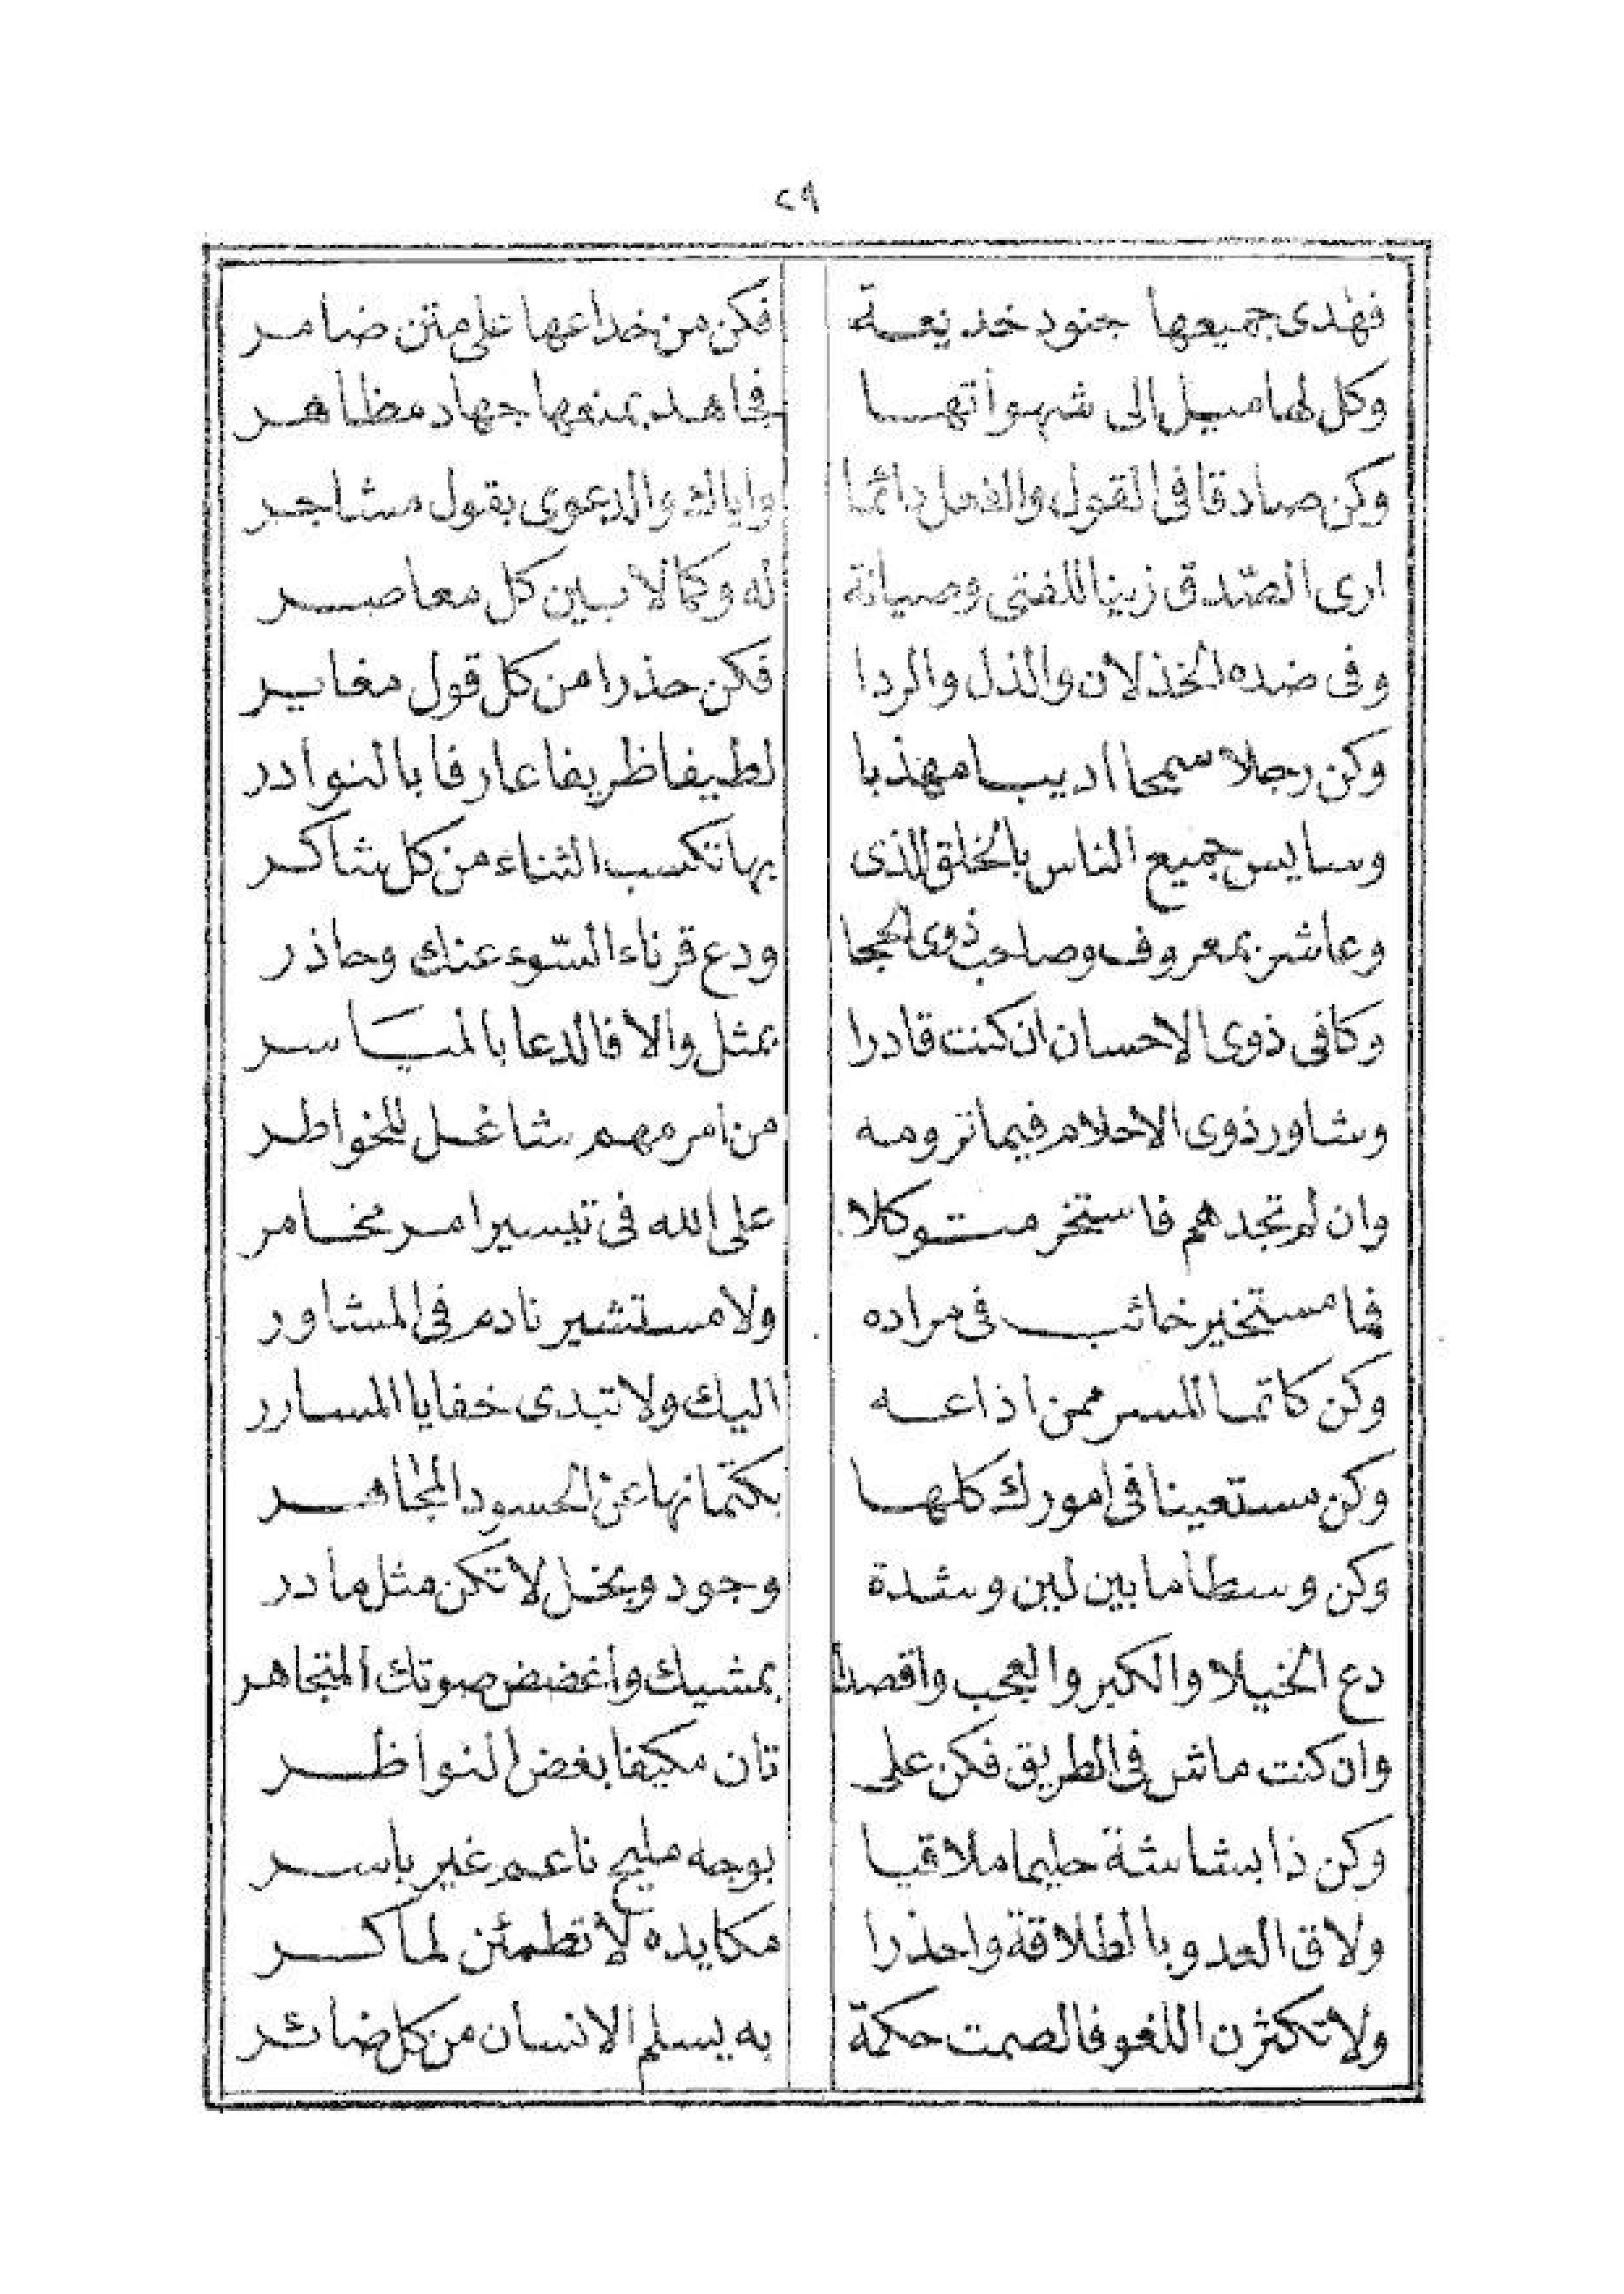 ٢٩
فهذى جميعها جنود خديعة فكن من خداعها على متن ضامر
وكل لها ميل الى شهواتها فجاهد بمنعها جهاد مظاهر
وكن صادقا فى القول والفعل دائما واياك والدعوى بقول مشاجر
ارى الصّدق زينا للفتى وصيانة له وكمالا بين كل معاصر
وفى ضده الخذلان والذل والردا فكن حذرا من كل قول مغاير
وكن رجلا سمحا اديبا مهذبا لطيفا ظريفا عارفا بالنوادر
وسايس جميع الناس بالخلق الذى بها تكسب الثناء من كل شاكر
وعاشر بمعروف وصاحب ذوى الحجا ودع قرناء السّوء عنك وحاذر
وكافى ذوى الاحسان ان كنت قادرا بمثل والا فالدعا بالمياسر
وشاور ذوى الاحلام فيما ترومه من امر مهم شاغل للخواطر
وان لم تجدهم فاستخر متوكلا على الله فى تيسير امر مخامر
فما مستخير خائب فى مراده ولا مستشير نادم فى المشاور
وكن كاتما للسر ممن اذاعه اليك ولا تبدى خفايا المسارر
وكن مستعينا فى امورك كلها بكتمانها عن الحسود المجاهر
وكن وسطا ما بين لين وشدة وجود وبخل لا تكن مثل مادر
دع الخيلا والكبر والعجب واقصدا بمشيك واغضض صوتك المتجاهر
وان كنت ماش فى الطريق فكن على تان مكيفا بغض النواظر
وكن ذا بشاشة حليما ملاقيا بوجه مليح ناعم غير باسر
ولاق العدو بالطلاقة واحذرا مكايده لا تطمئن لماكر
ولا تكثرن اللغو فالصمت حكمة به يسلم الانسان من كل ضائر